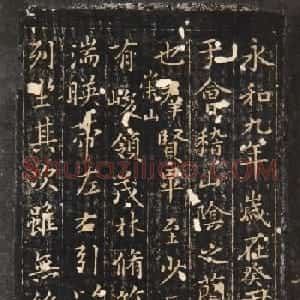 永和九年歲在癸丑
于會稽山陰之蘭
也羣賢畢至少
有崇山峻領茂林脩
湍暎帶左右引以
列坐其次雖無